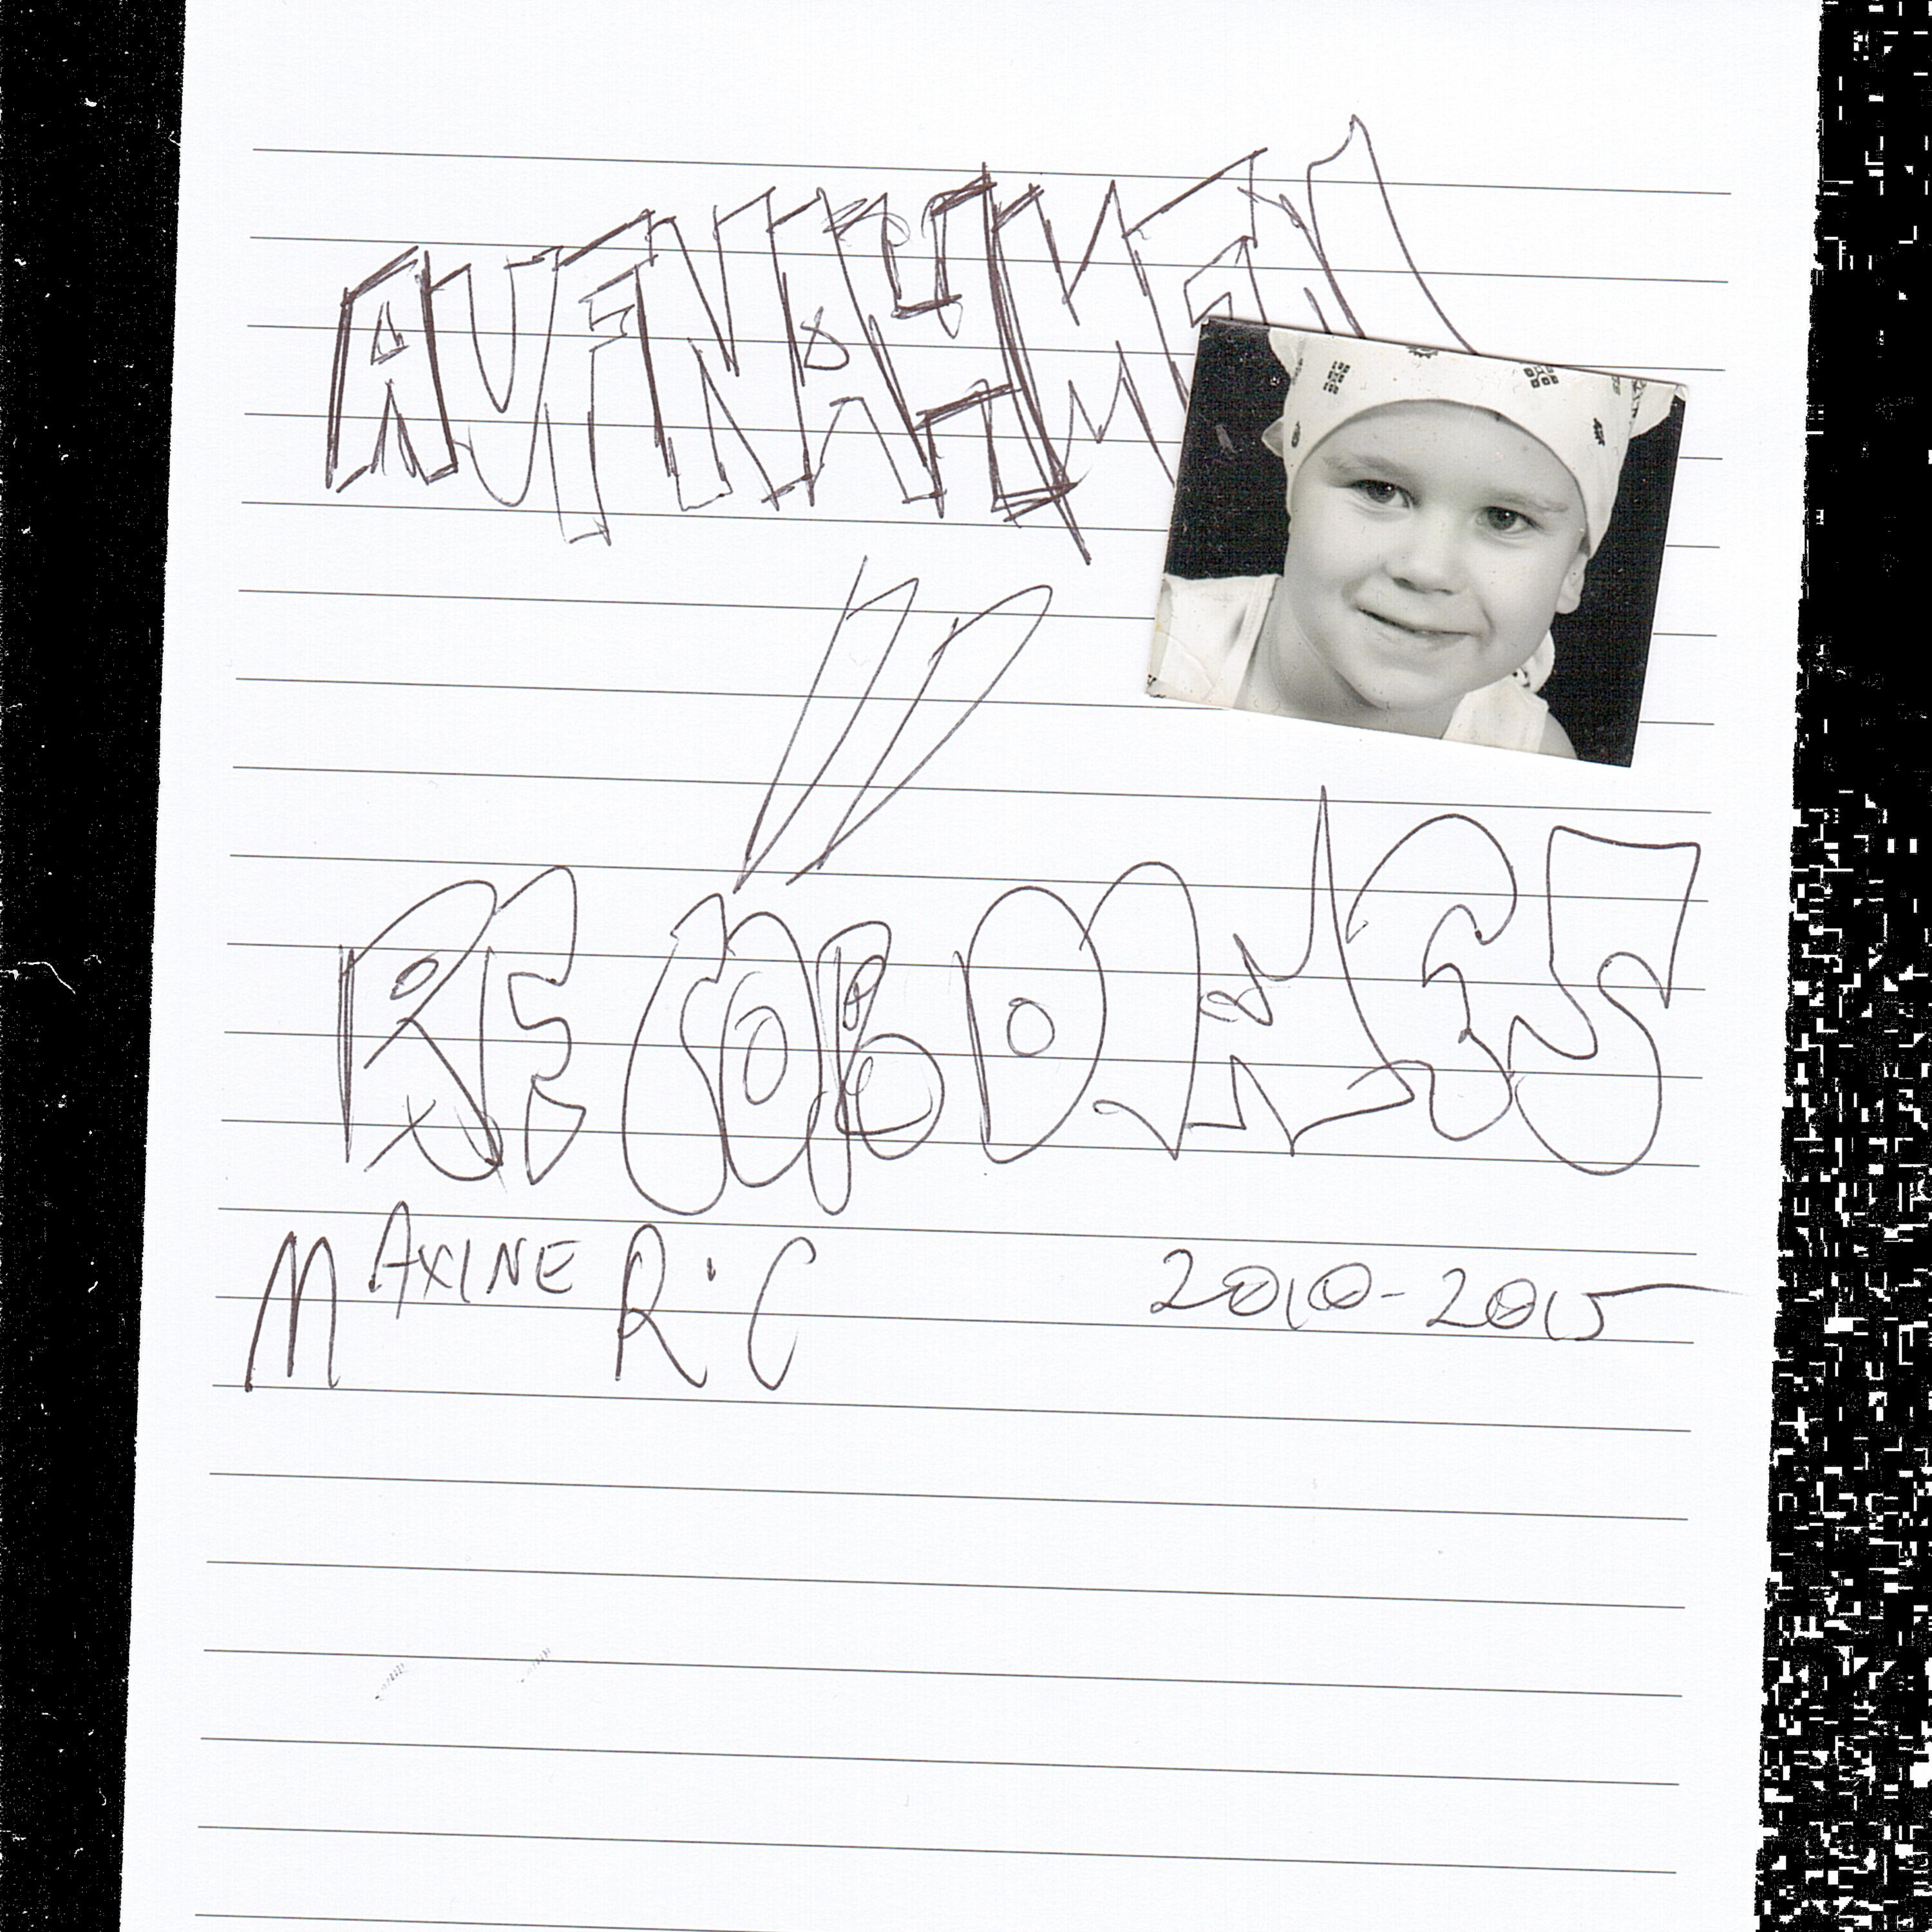 AUFNAHMEN
//
RECORDINGS
MAXINE R·C 2010-2015